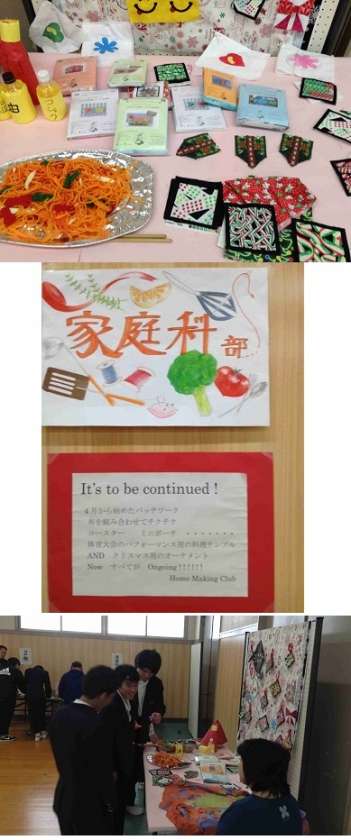 家庭科部
It's to be continued !
4月から始めたパッチワーク
布を組み合わせてチクチク
コースター　ミニポーチ　・・・・・・・
体育大会のパフォーマンス用の料理サンプル
AND　クリスマス用のオーナメント
Now　すべてが　Ongoing!!!!!!
Home Making Club